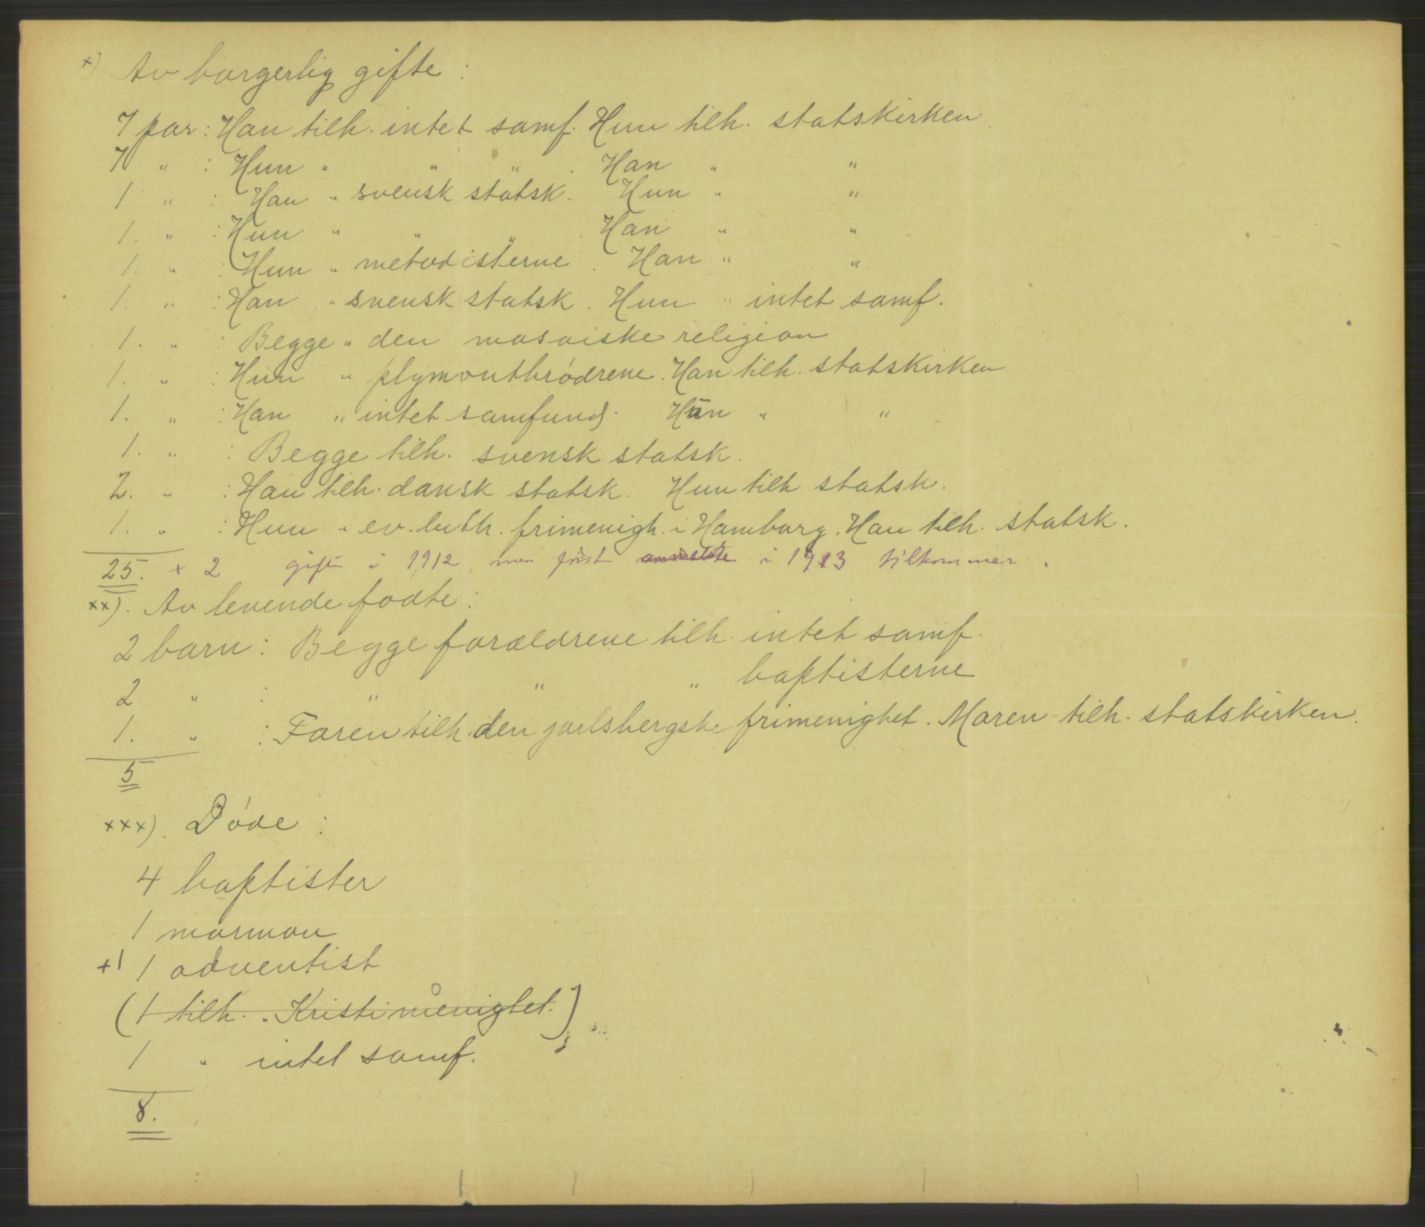 x) Av borgerlig gifte :
7 par : Han tilh. intet samf. Hun tilh. statskirken
7 " : Hun " " " . Han " "
1 " : Han " svensk statsk. Hun " "
1. " : Hun " " " . Han " "
1. " : Hun " metodisterne . Han " "
1. " : Han " svensk statsk . Hun " intet samf.
1. " : Begge " den mosaiske religion
1. " : Hun " plymouthbrødrene. Han tilh. statskirken
1. " : Han " intet samfund. Hun " "
1. " : Begge tilh. svensk statsk.
2. " : Han tilh. dansk statsk. Hun tilh statsk.
1. " : Hun " ev. luth. frimenigh. i Hamburg. Han tilh. statsk.
25. + 2 gift i 1912 men først anmeldte i 1913 tilkommer .
xx). Av levende fødte :
2 barn : Begge forældrene tilh. intet samf.
2 " : " " " baptisterne
1. " : Faren tilh. den jarlsbergske frimenighet. Moren tilh. statskirken.
5
xxx). Døde :
4 baptister
1 mormon
+1 1 adventist
(1 tilh. " Kristi menighet.)
1 " intet samf.
8.